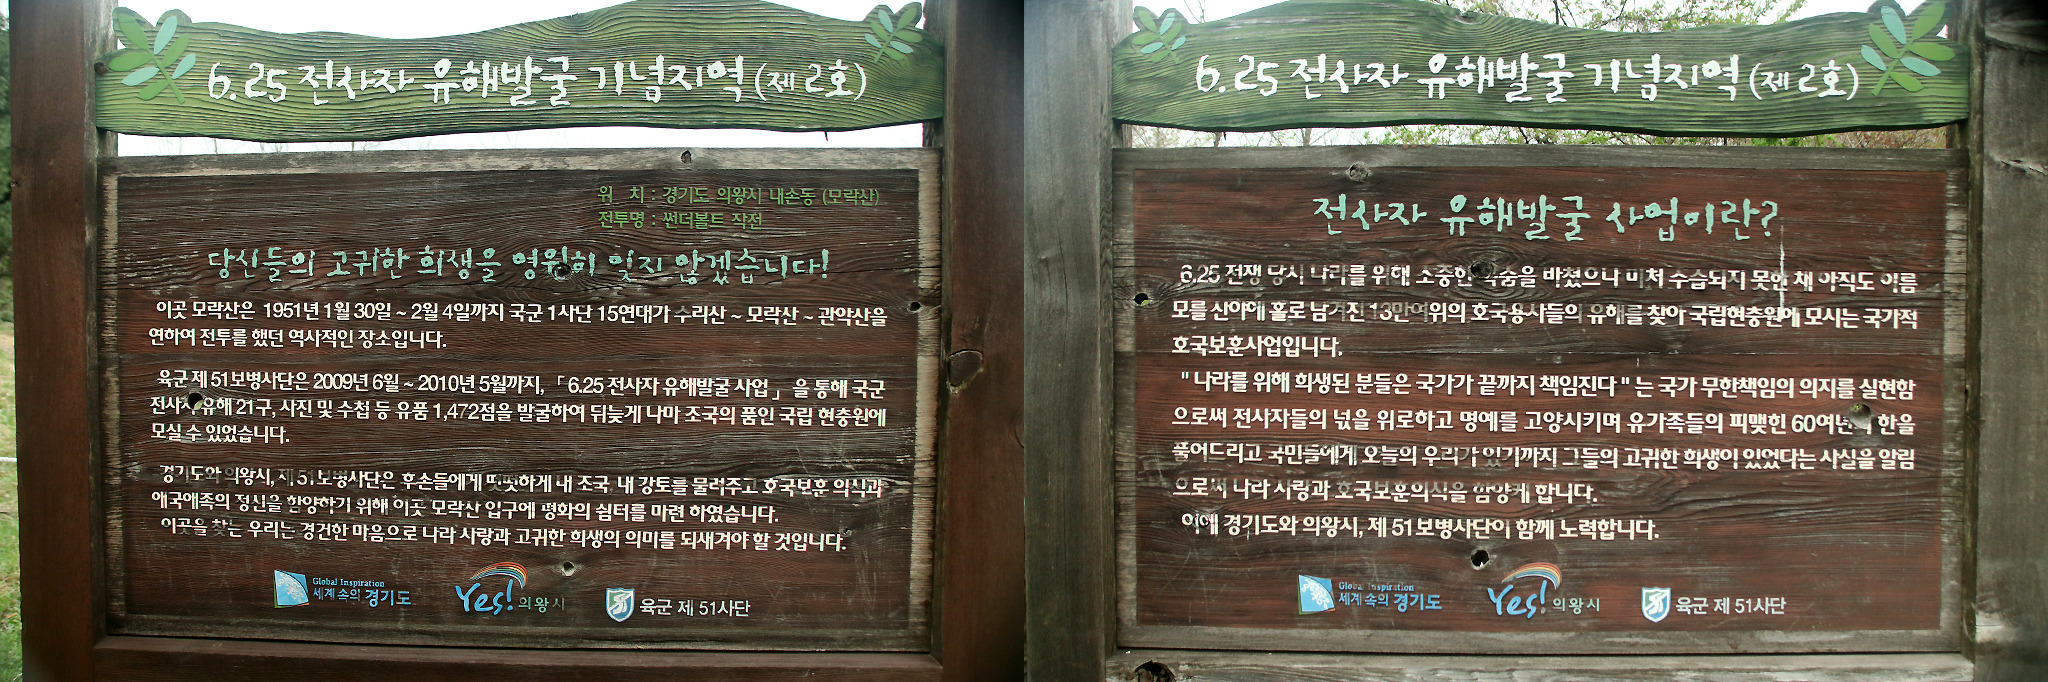 6.25 전사자 유해발굴 기념지역 (제 2호)
위 치 : 경기도 의왕시 내손동 (모락산)
전투명 : 썬더볼트 작전
당신들의 고귀한 희생을 영원히 잊지 않겠습니다!
이곳 모락산은 1951년 1월 30일 ~ 2월 4일까지 국군 1사단 15연대가 수리산 ~ 모락산 ~ 관악산을
연하여 전투를 했던 역사적인 장소입니다.
육군 제 51보병사단은 2009년 6월 ~ 2010년 5월까지, 「6.25 전사자 유해발굴 사업」 을 통해 국군
전사자 유해 21구, 사진 및 수첩 등 유품 1,472점을 발굴하여 뒤늦게 나마 조국의 품인 국립 현충원에
모실 수 있었습니다.
경기도와 의왕시, 제 51보병사단은 후손들에게 떳떳하게 내 조국, 내 강토를 물려주고 호국보훈 의식과
애국애족의 정신을 함양하기 위해 이곳 모락산 입구에 평화의 쉼터를 마련 하였습니다.
이곳을 찾는 우리는 경건한 마음으로 나라 사랑과 고귀한 희생의 의미를 되새겨야 할 것입니다.
Global Inspiration
세계 속의 경기도
Yes! 의왕시
육군 제 51사단
6.25 전사자 유해발굴 기념지역 (제 2호)
전사자 유해발굴 사업이란?
6.25 전쟁 당시 나라를 위해 소중한 목숨을 바쳤으나 미처 수습되지 못한 채 아직도 이름
모를 산야에 홀로 남겨진 13만여위의 호국용사들의 유해를 찾아 국립현충원에 모시는 국가적
호국보훈사업입니다.
" 나라를 위해 희생된 분들은 국가가 끝까지 책임진다 " 는 국가 무한책임의 의지를 실현함
으로써 전사자들의 넋을 위로하고 명예를 고양시키며 유가족들의 피맺힌 60여년의 한을
풀어드리고 국민들에게 오늘의 우리가 있기까지 그들의 고귀한 희생이 있었다는 사실을 알림
으로써 나라 사랑과 호국보훈의식을 함양케 합니다.
이에 경기도와 의왕시, 제 51보병사단이 함께 노력합니다.
Global Inspiration
세계 속의 경기도
Yes! 의왕시
육군 제 51사단